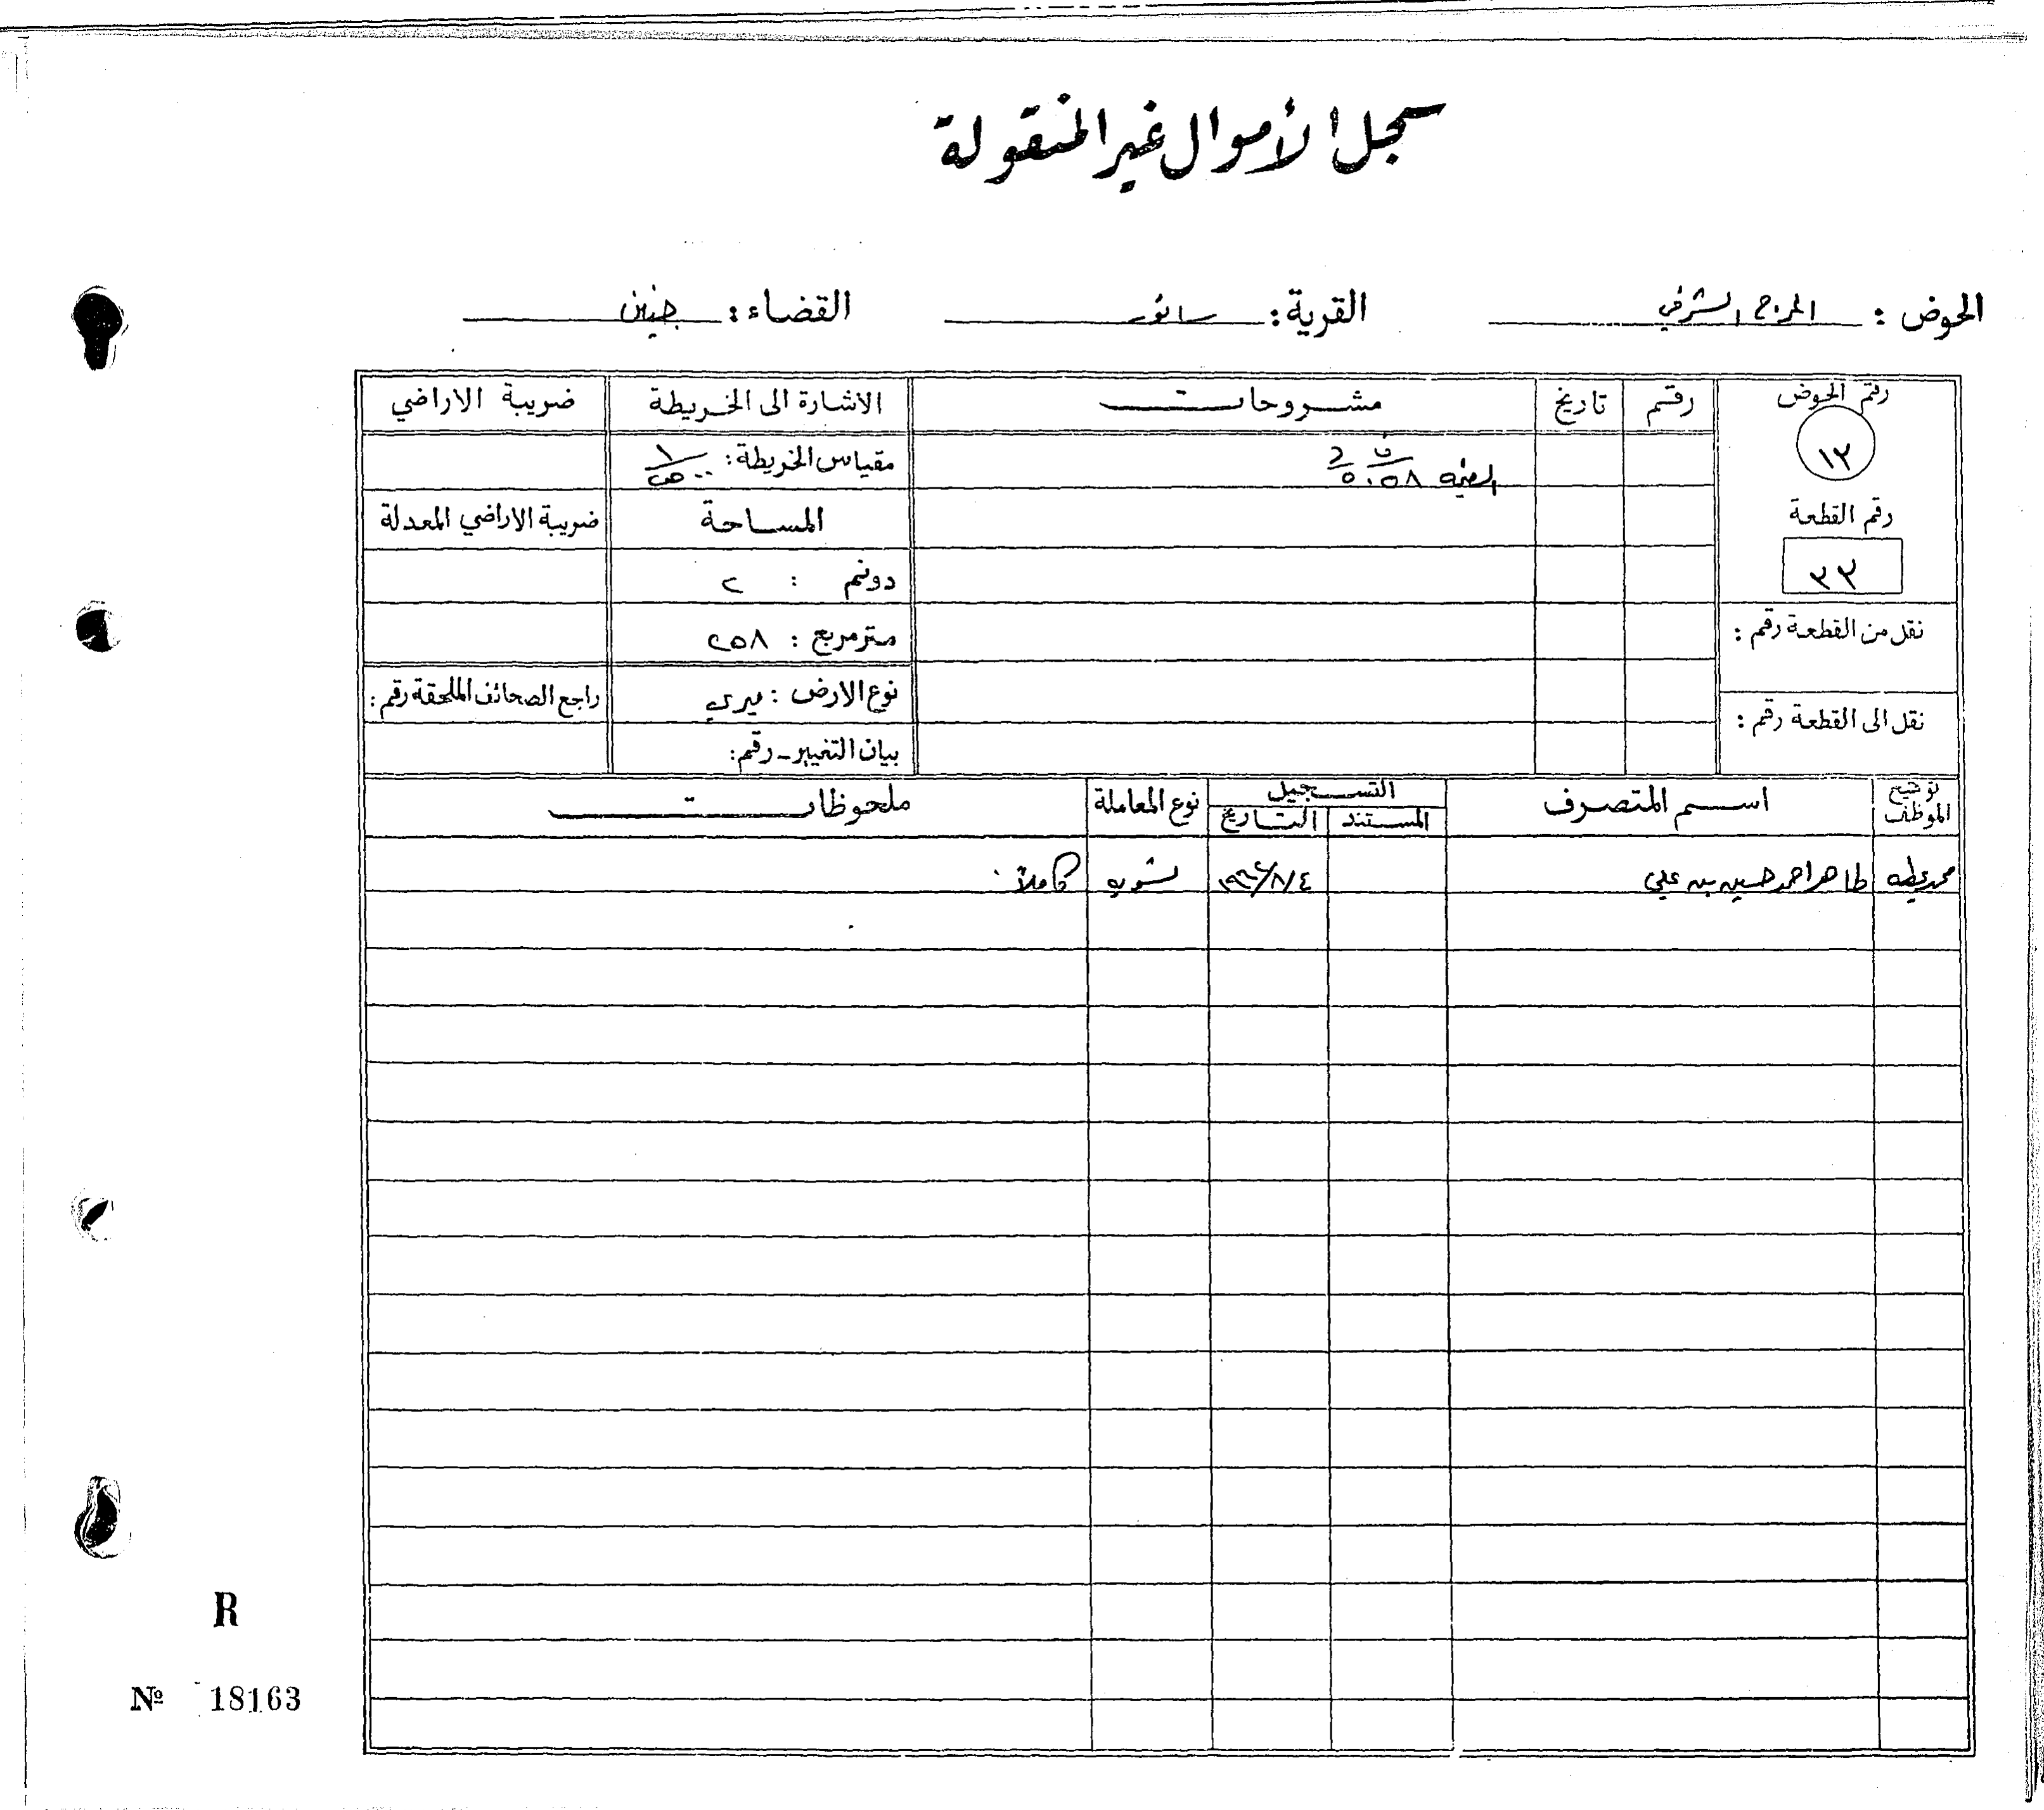 سجل الأموال غير المنقولة
الحوض : المرج الشرقي القرية : سانور القضاء : جنين
رقم الحوض رقم تاريخ مشروحات الاشارة الى الخريطة ضريبة الاراضي
١٢ ٥٠٥٨ مقياس الخريطة :
رقم القطعة المساحة ضريبة الاراضي المعدلة
٣٣ دونم : ٢
نقل من القطعة رقم : متر مربع : ٢٥٨
نوع الارض : ميري راجع الصحائف الملحقة رقم :
نقل الى القطعة رقم : بيان التغيير - رقم :
توقيع الموظف اسم المتصرف التسجيل نوع المعاملة ملحوظات
المستند التاريخ
محمد عطيه طاهر احمد حسين بن علي ٤/٨/ تسويه كاملاً
R
№ 18163